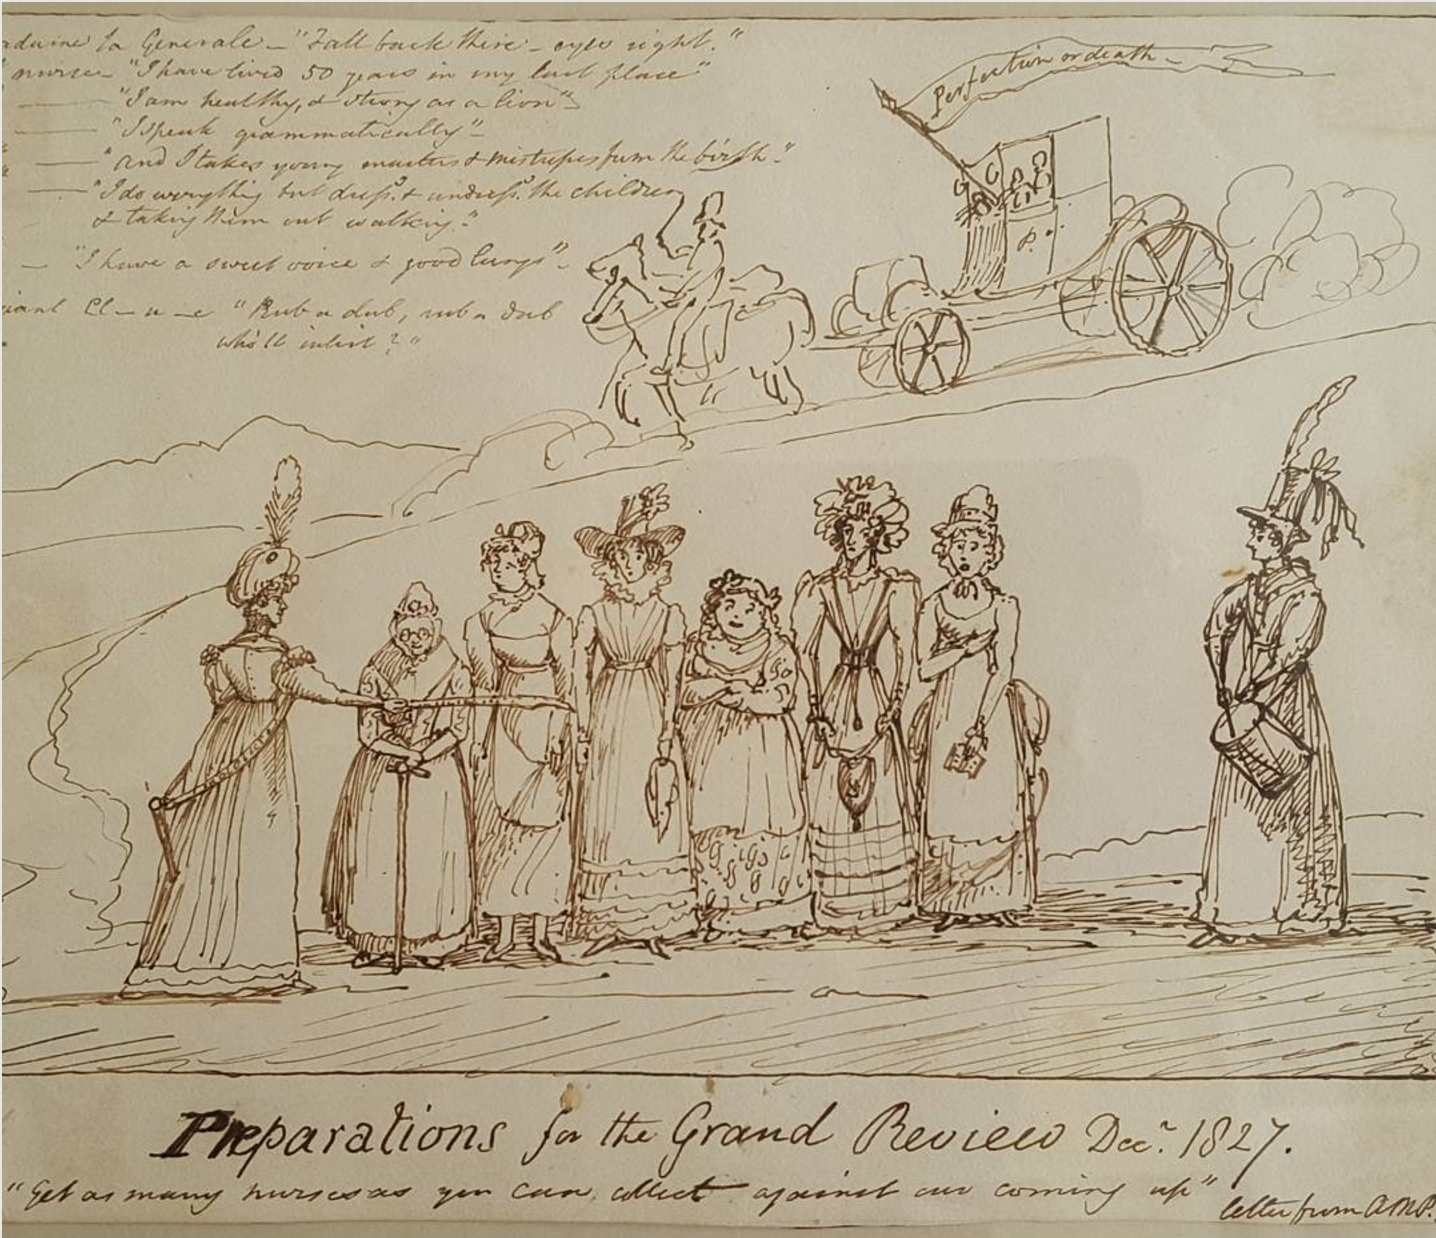 la Generale — "Fall back there — eyes right."
nurse — "I have lived 50 years in my last place"
— "I am healthy, & strong as a lion"
— "I speak grammatically" —
— "and I takes young masters & mistresses from the birth."
— "I do everything but dress.g & undress.g the children
& taking them out walking."
— "I have a sweet voice & good lungs" —
Cl—u—e "Rub a dub, rub a dub
who'll inlist?"
Perfection or death —
P.
Preparations for the Grand Review Decr. 1827.
"Get as many nurses as you can collect against our coming up"
letter from AMP.